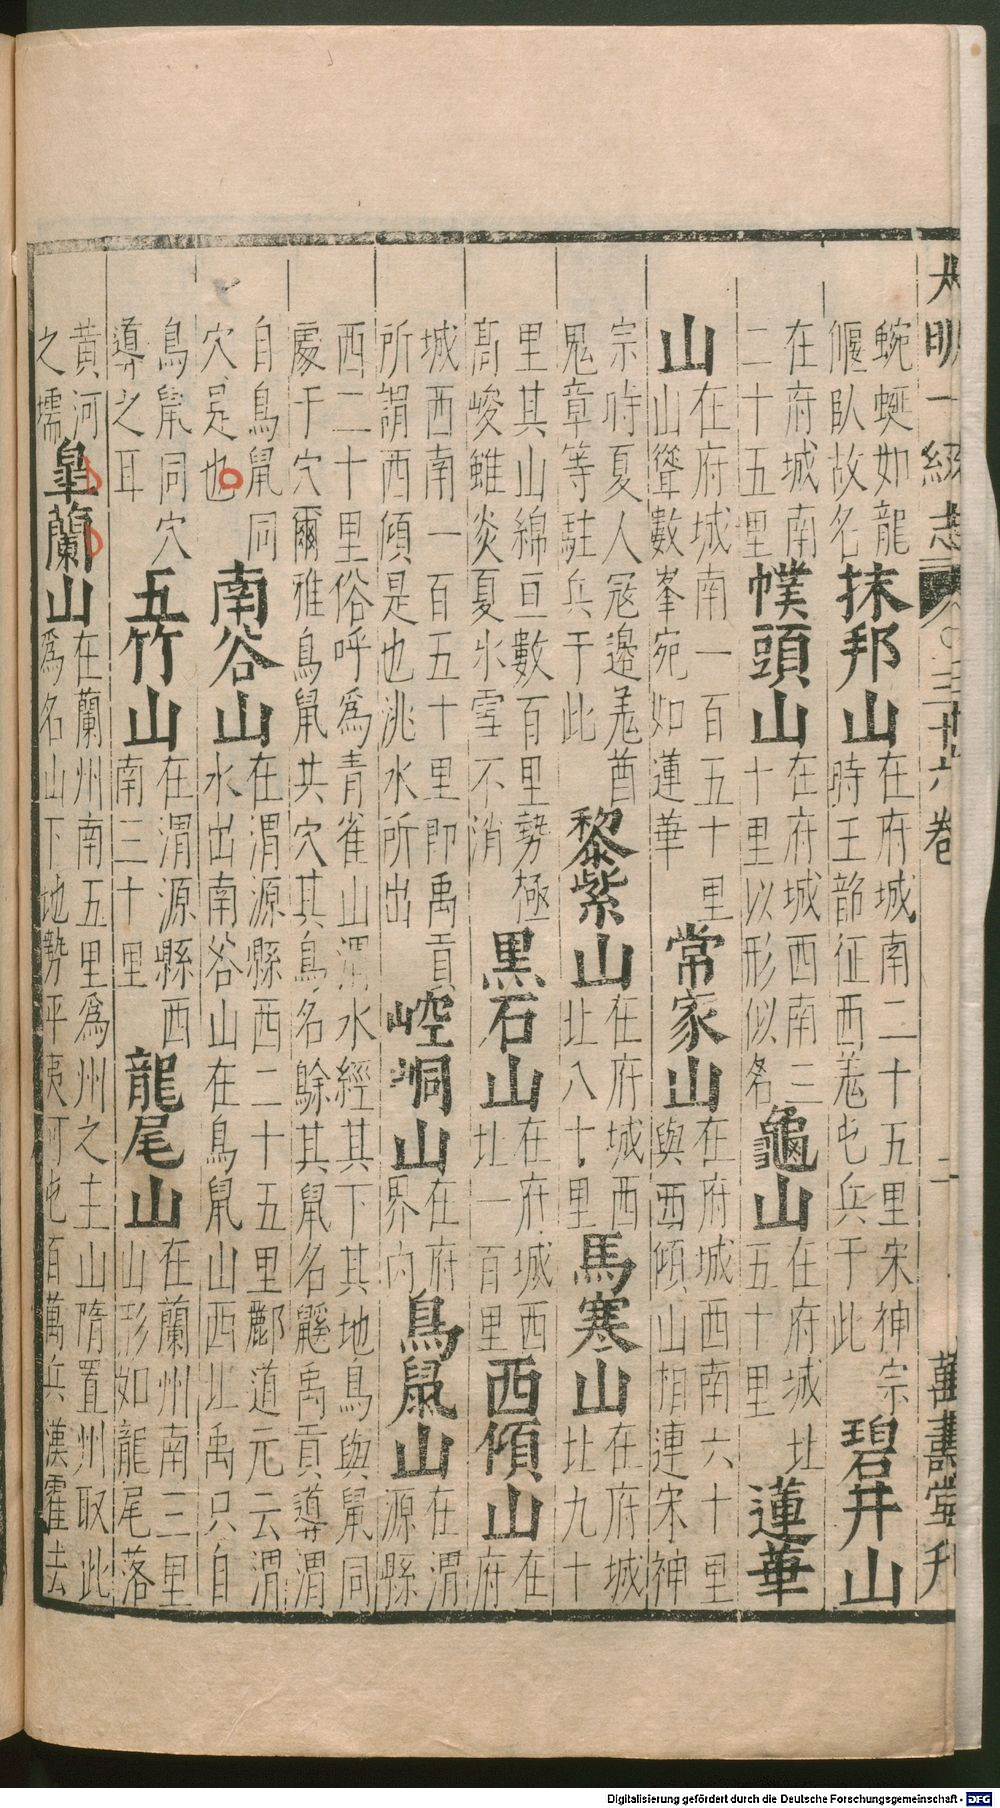 大明一統志 三十六卷 二 萬壽堂刊
蜿蜒如龍偃臥故名抹邦山在府城南二十五里宋神宗時王韶征西羌屯兵于此碧井山
在府城南二十五里幞頭山在府城西南三十里以形似名龜山在府城北五十里蓮華
山在府城南一百五十里山聳數峯宛如蓮華常家山在府城西南六十里與西傾山相連宋神
宗時夏人冦邊羌酋鬼章等駐兵于此黎紫山在府城西北八十里馬寒山在府城北九十
里其山綿亘數百里勢極髙峻雖炎夏氷雪不消黑石山在府城西北一百里西傾山在府
城西南一百五十里即禹貢所謂西傾是也洮水所出崆峒山在府界内鳥鼠山在渭源縣
西二十里俗呼爲青雀山渭水經其下其地鳥與鼠同處于穴爾雅鳥鼠共穴其鳥名鵌其鼠名鼵禹貢導渭
自鳥鼠同穴是也南谷山在渭源縣西二十五里酈道元云渭水出南谷山在鳥鼠山西北禹只自
鳥鼠同穴導之耳五竹山在渭源縣西南三十里龍尾山在蘭州南三里山形如龍尾落
黄河之壖臯蘭山在蘭州南五里爲州之主山隋置州取此爲名山下地勢平夷可屯百萬兵漢霍去
Digitalisierung gefördert durch die Deutsche Forschungsgemeinschaft - DFG